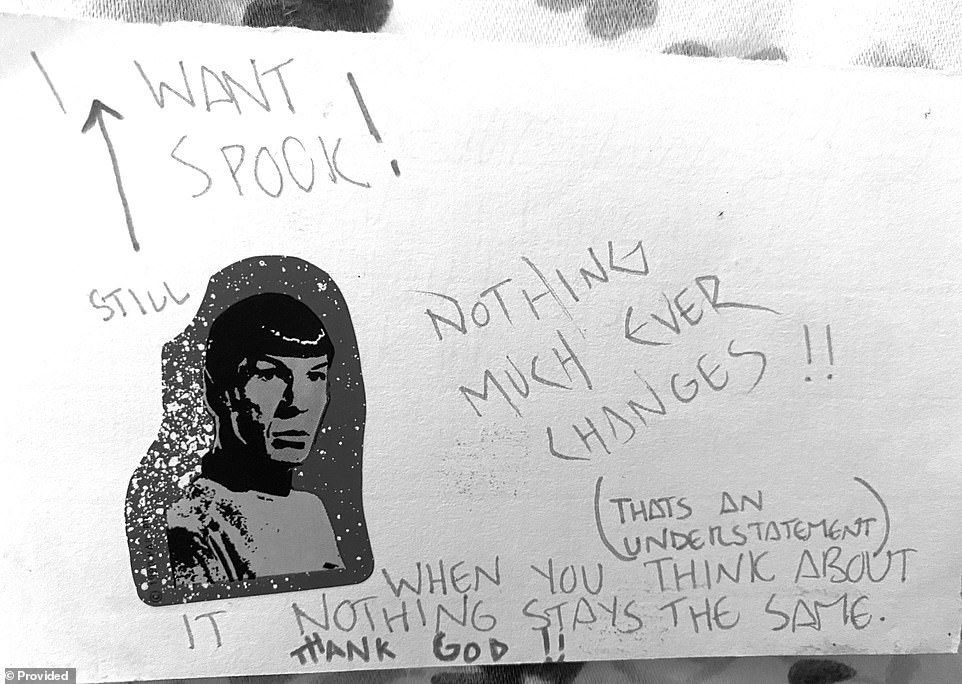 I WANT
SPOCK!
STILL
NOTHING
MUCH EVER
CHANGES!!
(THATS AN
UNDERSTATEMENT)
WHEN YOU THINK ABOUT
IT NOTHING STAYS THE SAME.
THANK GOD!!
© Provided